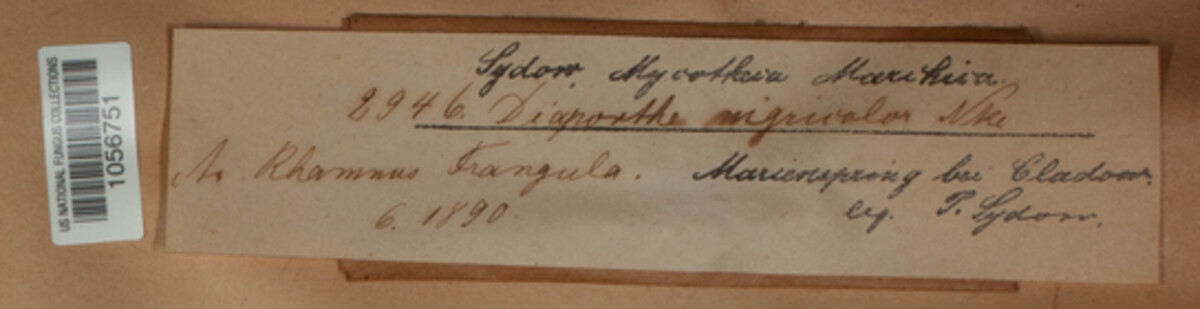 US NATIONAL FUNGUS COLLECTIONS
1056751
Sydow, Mycotheca Marchica.
2946. Diaporthe nigricolor Nke
An Rhamnus Frangula. Marienspring bei Cladow.
6. 1890. leg. P. Sydow.